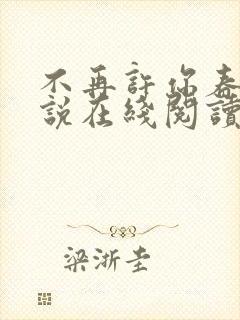 不再許你春
說在綫閱讀
梁浙圭